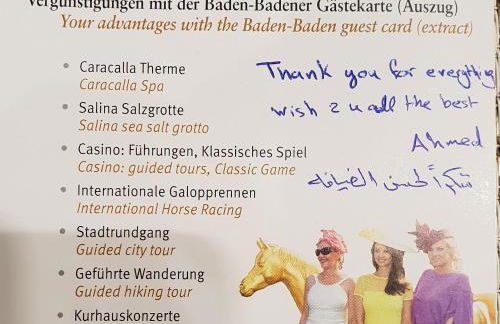 Vergünstigungen mit der Baden-Badener Gästekarte (Auszug)
Your advantages with the Baden-Baden guest card (extract)
Caracalla Therme
Caracalla Spa
Salina Salzgrotte
Salina sea salt grotto
Casino: Führungen, Klassisches Spiel
Casino: guided tours, Classic Game
Internationale Galopprennen
International Horse Racing
Stadtrundgang
Guided city tour
Geführte Wanderung
Guided hiking tour
Kurhauskonzerte
Thank you for everything
wish 2 u all the best
Ahmed
شكراً لحسن الضيافه